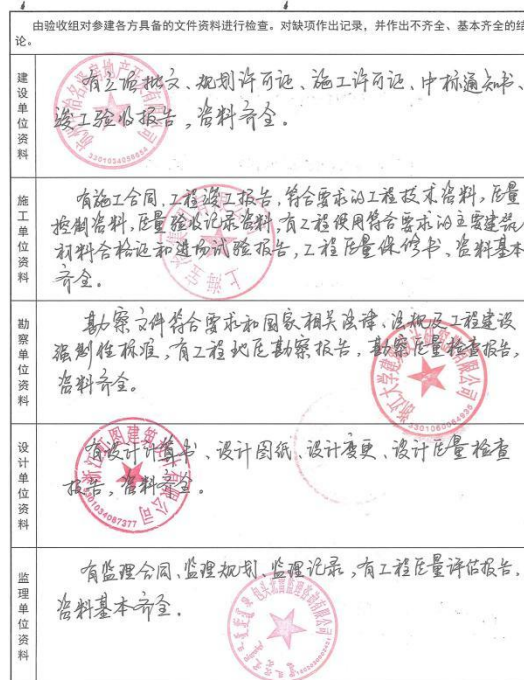 由验收组对参建各方具备的文件资料进行检查。对缺项作出记录，并作出不齐全、基本齐全的结
论。
建设单位资料
有立项批文、规划许可证、施工许可证、中标通知书、
竣工验收报告，资料齐全。
3301034058654
施工单位资料
有施工合同、工程竣工报告，符合要求的工程技术资料，质量
控制资料，质量验收记录资料，有工程使用符合要求的主要建筑
材料合格证和进场试验报告，工程质量保修书、资料基本
齐全。
上海宝
勘察单位资料
勘察文件符合要求和国家相关法律、法规及工程建设
强制性标准，有工程地质勘察报告，勘察质量检查报告，
资料齐全。
浙江大学建筑设计
有限公司
设计单位资料
有设计计算书、设计图纸、设计变更、设计质量检查
报告，资料齐全。
图建筑设计有限公司
监理单位资料
有监理合同、监理规划、监理记录，有工程质量评估报告，
资料基本齐全。
包头
监理咨询有限公司